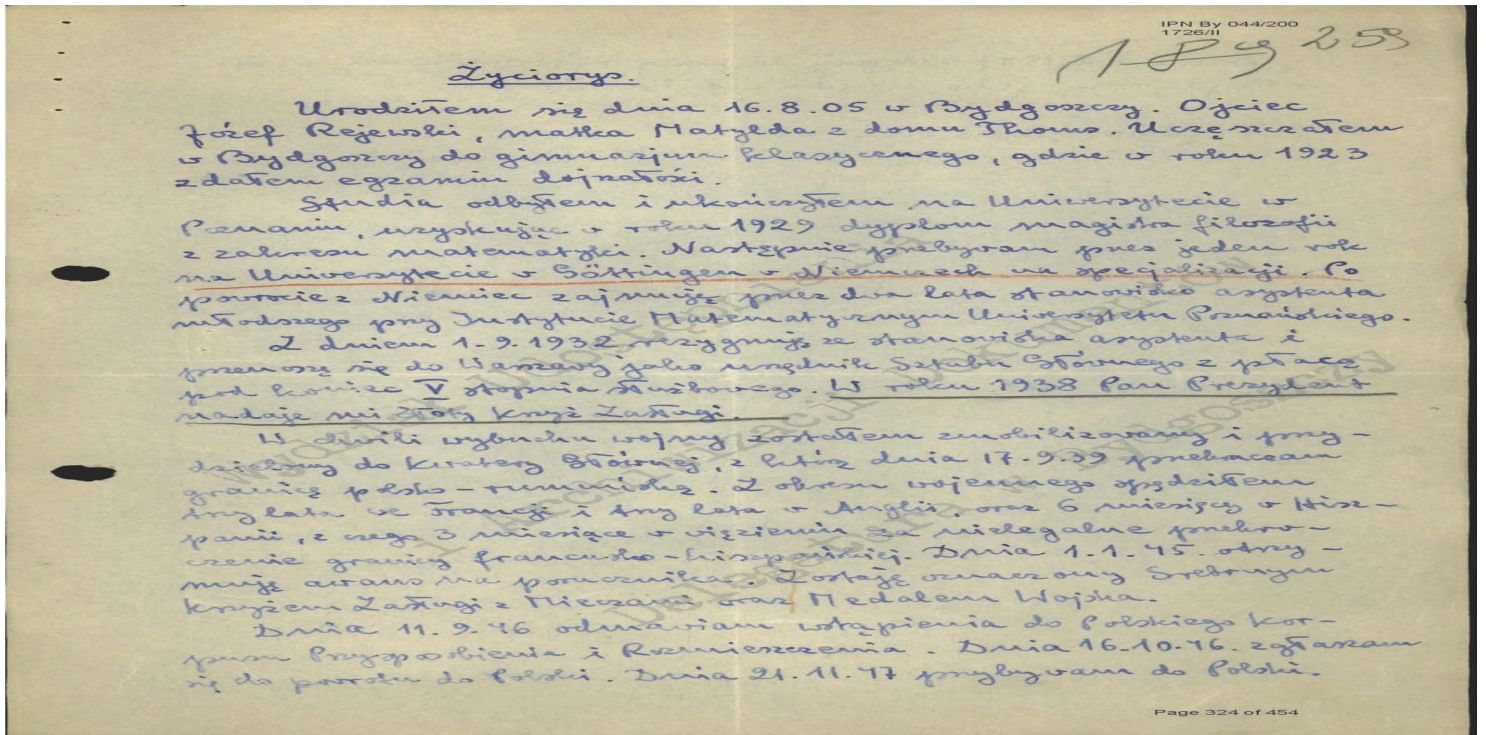 IPN By 044/200
1726/II
189 259
Życiorys.
Urodziłem się dnia 16.8.05 w Bydgoszczy. Ojciec
Józef Rejewski, matka Matylda z domu Thoms. Uczęszczałem
w Bydgoszczy do gimnazjum klasycznego, gdzie w roku 1923
zdałem egzamin dojrzałości.
Studia odbyłem i ukończyłem na Uniwersytecie w
Poznaniu, uzyskując w roku 1929 dyplom magistra filozofii
z zakresu matematyki. Następnie przebywam przez jeden rok
na Uniwersytecie w Göttingen w Niemczech na specjalizacji. Po
powrocie z Niemiec zajmuję przez dwa lata stanowisko asystenta
młodszego przy Instytucie Matematycznym Uniwersytetu Poznańskiego.
Z dniem 1.9.1932 rezygnuję ze stanowiska asystenta i
przenoszę się do Warszawy jako urzędnik Sztabu Głównego z płacą
pod koniec V stopnia służbowego. W roku 1938 Pan Prezydent
nadaje mi Złoty Krzyż Zasługi.
W chwili wybuchu wojny zostałem zmobilizowany i przy-
dzielony do Kwatery Głównej, z którą dnia 17.9.39 przekraczam
granicę polsko-rumuńską. Z okresu wojennego spędziłem
trzy lata we Francji i trzy lata w Anglii, oraz 6 miesięcy w Hisz-
panii, z czego 3 miesiące w więzieniu za nielegalne przekro-
czenie granicy francusko-hiszpańskiej. Dnia 1.1.45. otrzy-
muję awans na porucznika. Zostaję oznaczony Srebrnym
Krzyżem Zasługi z Mieczami oraz Medalem Wojska.
Dnia 11.9.46 odmawiam wstąpienia do Polskiego Kor-
pusu Przysposobienia i Rozmieszczenia. Dnia 16.10.46. zgłaszam
się do powrotu do Polski. Dnia 21.11.47 przybywam do Polski.
Page 324 of 454